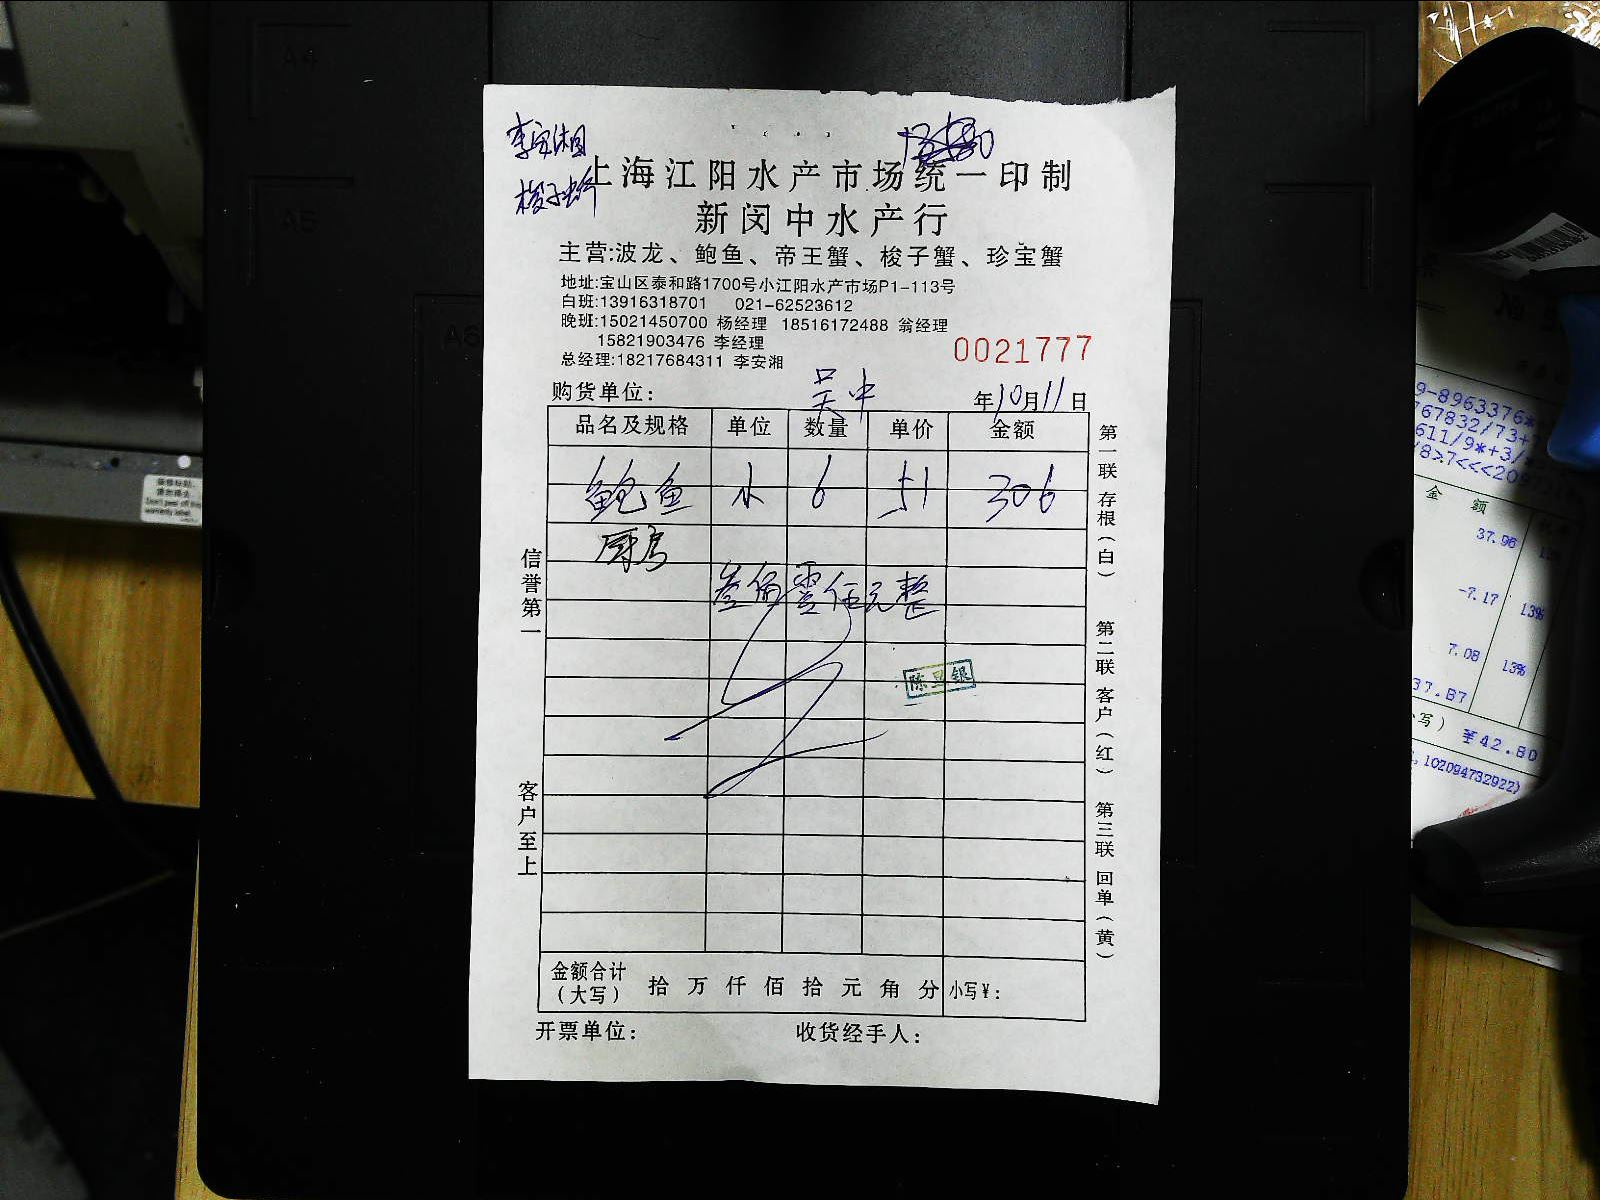 李安湘
梭子蟹
上海江阳水产市场统一印制
新闵中水产行
主营:波龙、鲍鱼、帝王蟹、梭子蟹、珍宝蟹
地址:宝山区泰和路1700号小江阳水产市场P1-113号
白班:13916318701 021-62523612
晚班:15021450700 杨经理 18516172488 翁经理
15821903476 李经理
总经理:18217684311 李安湘
0021777
购货单位: 吴中 年10月11日
品名及规格 单位 数量 单价 金额
鲍鱼 小 6 51 306
厨房
叁佰零伍元整
陈 银
信誉第一
客户至上
第一联 存根(白)
第二联 客户(红)
第三联 回单(黄)
金额合计
(大写) 拾 万 仟 佰 拾 元 角 分 小写¥:
开票单位: 收货经手人:
A4
A5
A6
9-8963376*
767832/73+
611/9*+3/
/8>7<<<20
金 额
37.96
-7.17 13%
7.08 13%
37.87
写) ¥42.80
102094732922)